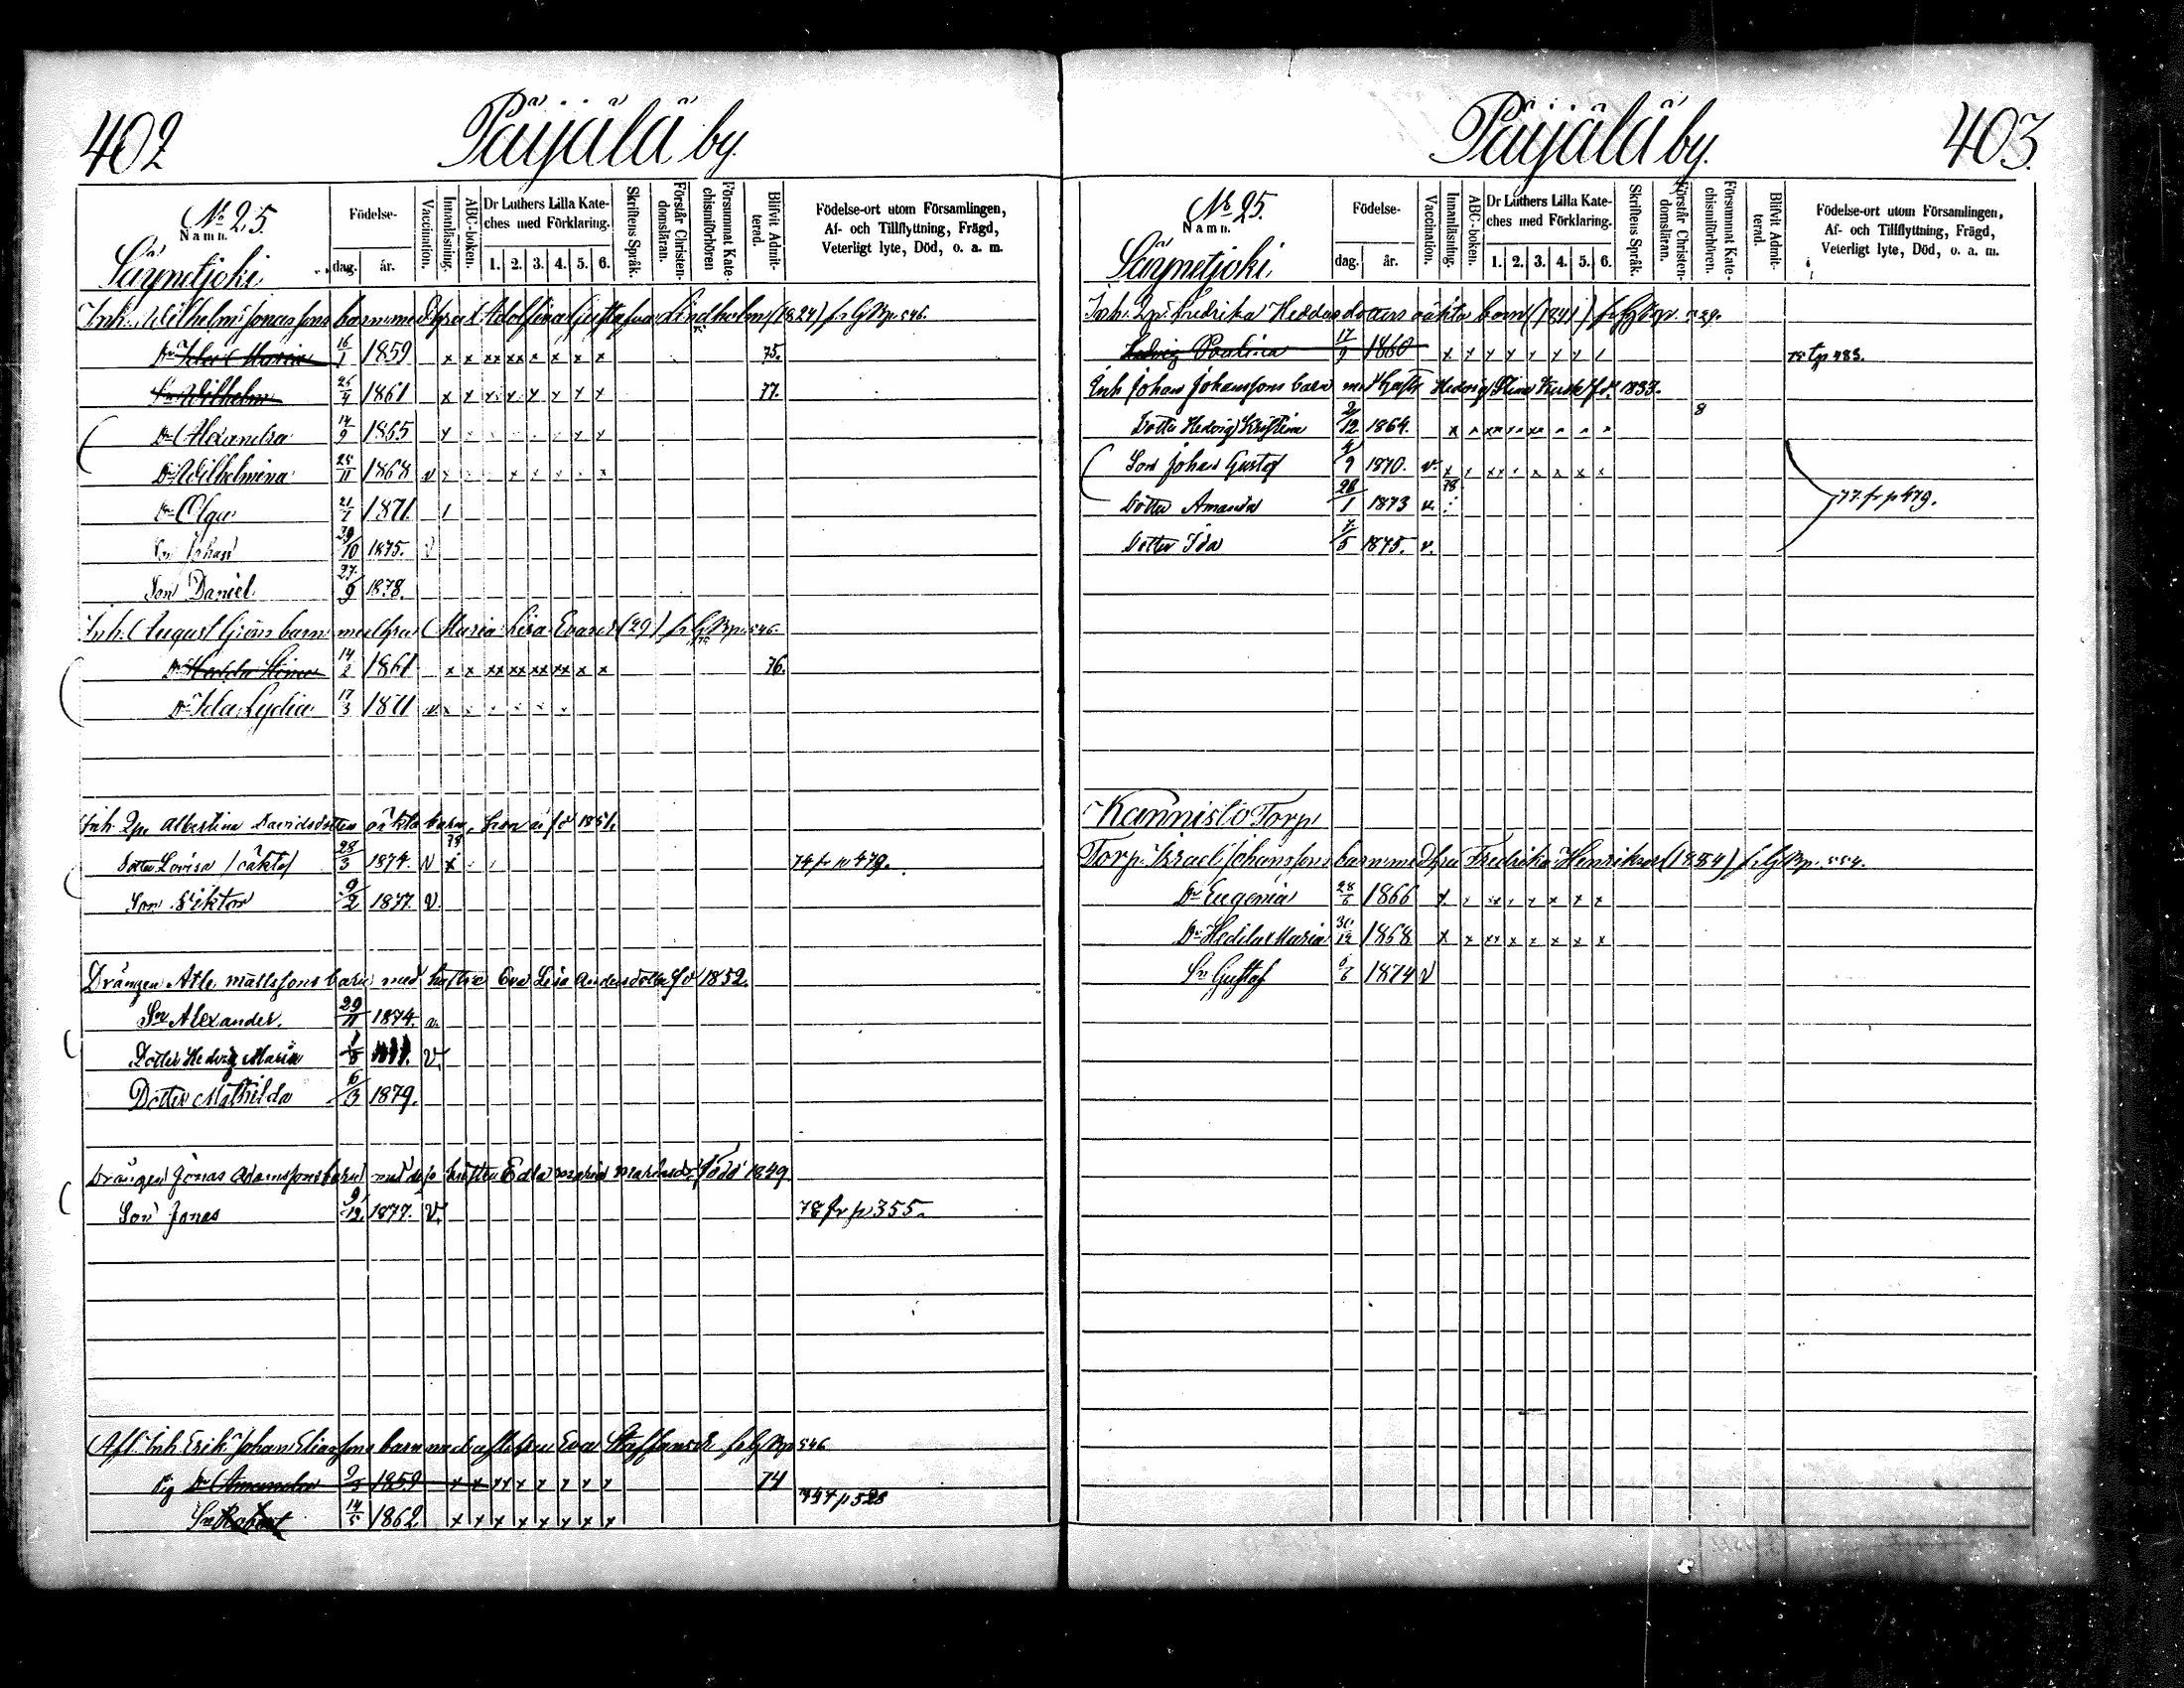 402
Päijälä by.
No 25.
Namn.
Särmetjoki
Födelse-
dag.
år.
Vaccination.
Innanläsning.
ABC-boken.
Dr Luthers Lilla Kate-
ches med Förklaring.
1. 2. 3. 4. 5. 6.
Skriftens Språk.
Förstår Christen-
domsläran.
Försummat Kate-
chismiförhören
Blifvit Admit-
terad.
Födelse-ort utom Församlingen,
Af- och Tillflyttning, Frägd,
Veterligt lyte, Död, o. a. m.
Inh. Wilhelm Jonassons barn med hru Adolfina Lindholm (1824) fr 546.
Dr Ida Maria 16/1 1859 x x xx xx x x x x 75.
Sn Wilhelm 1861 x x x x x x x x 77.
Dr Alexandra 14/9 1865
Dr Wilhelmina 25/11 1868 v
Dr Olga 1871
Sn Johan 29/10 1875. v
Son Daniel 27/9 1878.
Inh. August barn med hru Maria Lisa (29) fr 546.
Dr Hedda Stina 14/2 1861 x x xx xx xx xx x x 76.
Dr Ida Lydia 17/3 1871 v
Inh. Qp. Albertina Davidsdotters oäkta barn, hon är fd 1851.
Dotter Lovisa /oäkta/ 28/3 1874. v 74 fr p 479.
Son Viktor 9/2 1877. v.
Drängen Atle Mattssons barn med hustru Eva Lisa Andersdotter fd 1852.
Sn Alexander. 29/11 1874.
Dotter Hedvig Maria v.
Dotter Mathilda 6/3 1879.
Drängen Jonas Adamssons barn med dess hustru Edla Maria född 1849.
Son Jonas 9/12. 1877. v. 78 fr p 355.
Afl. Inh. Erik Johan Eliassons barn med Eva Staffansdr fr 546
Pig Dr Amanda 1859 x x xx x x x x x 74
Sn Robert 14/5 1862. x x x x x x x x p 528
Päijälä by.
403.
No 25.
Namn.
Särmetjoki
Födelse-
dag.
år.
Vaccination.
Innanläsning.
ABC-boken.
Dr Luthers Lilla Kate-
ches med Förklaring.
1. 2. 3. 4. 5. 6.
Skriftens Språk.
Förstår Christen-
domsläran.
Försummat Kate-
chismiförhören.
Blifvit Admit-
terad.
Födelse-ort utom Församlingen,
Af- och Tillflyttning, Frägd,
Veterligt lyte, Död, o. a. m.
Inh. Qp. Fredrika Heddasdotters oäkta barn (1841) fr
Hedvig Paulina 17/9 1860 p 483.
Inh Johan Johanssons barn med Hustr Hedvig Stina fd. 1833.
Dotter Hedvig Kristina 2/12 1864. 8
Son Johan Gustaf 1870. v.
Dotter Amanda 28/1 1873 v. 78
Dotter Ida 7/5 1875. v.
77. fr p 479.
Kannisto Torp
Torp. Israel Johanssons barn med hru Fredrika Henriksdr (1834) fr 554.
Dr Eugenia 1866
Dr Hedda Maria 30/12 1868
Sn Gustaf 1874 v